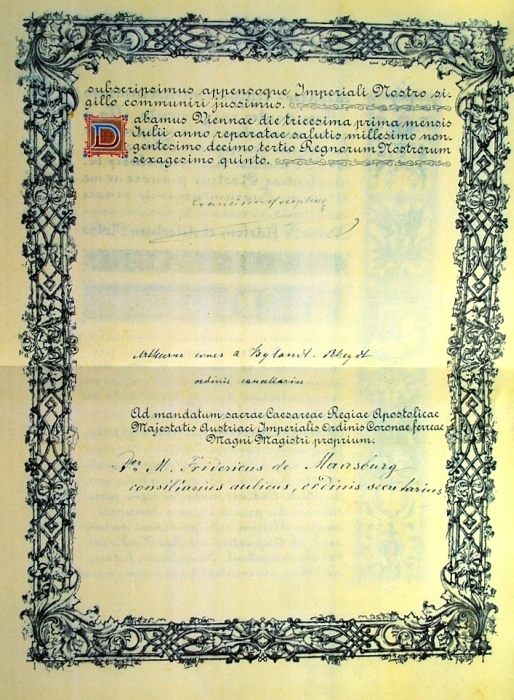 subscripsimus appensoque Imperiali Nostro si-
gillo communiri jussimus.
Dabamus Viennae die tricesima prima mensis
Iulii anno reparatae salutis millesimo non-
gentesimo decimo tertio Regnorum Nostrorum
sexagesimo quinto.
Franciscus Josephus
Arthurus comes a Bylandt-Rheydt
ordinis cancellarius
Ad mandatum sacrae Caesareae Regiae Apostolicae
Majestatis Austriaci Imperialis Ordinis Coronae ferreae
Magni Magistri proprium.
M. Fridericus de Mansburg
consiliarius aulicus, ordinis secretarius